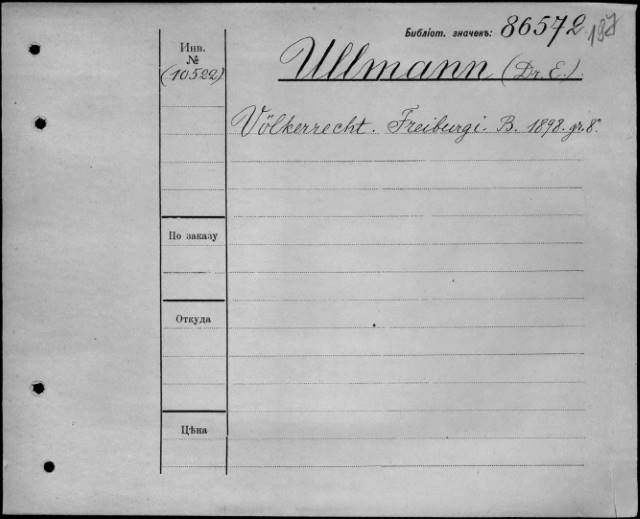 Библіот. значекъ: 86572
Инв.
№
(10522)
Ullmann (Dr. E.).
Völkerrecht. Freiburg i. B. 1898. gr. 8°
По заказу
Откуда
Цѣна